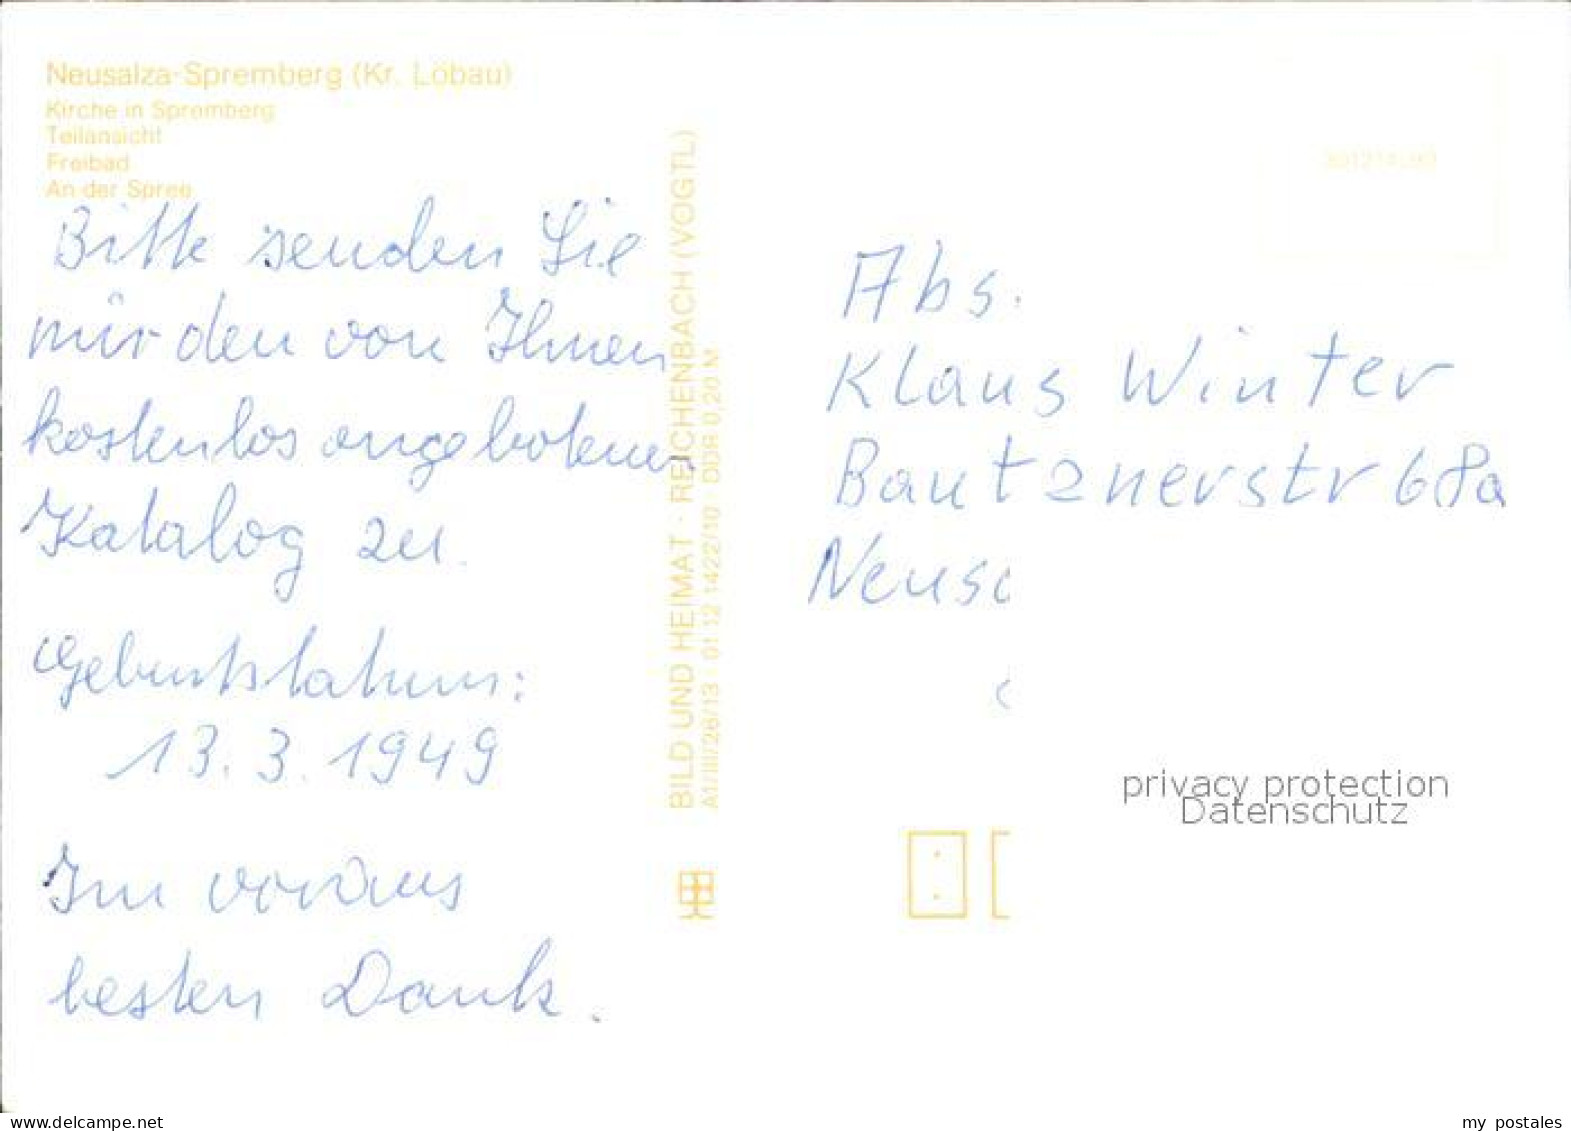 Neusalza-Spremberg (Kr. Löbau)
Kirche in Spremberg
Teilansicht
Freibad
An der Spree
Bitte senden Sie
mir den von Ihnen
kostenlos angebotenen
Katalog zu.
Geburtsdatum:
13.3.1949
Im voraus
besten Dank.
BILD UND HEIMAT · REICHENBACH (VOGTL)
A1/III/26/13 01 12 1422/10 DDR 0,20 M
Abs.
Klaus Winter
Bautznerstr 68a
privacy protection
Datenschutz
delcampe.net
my_postales